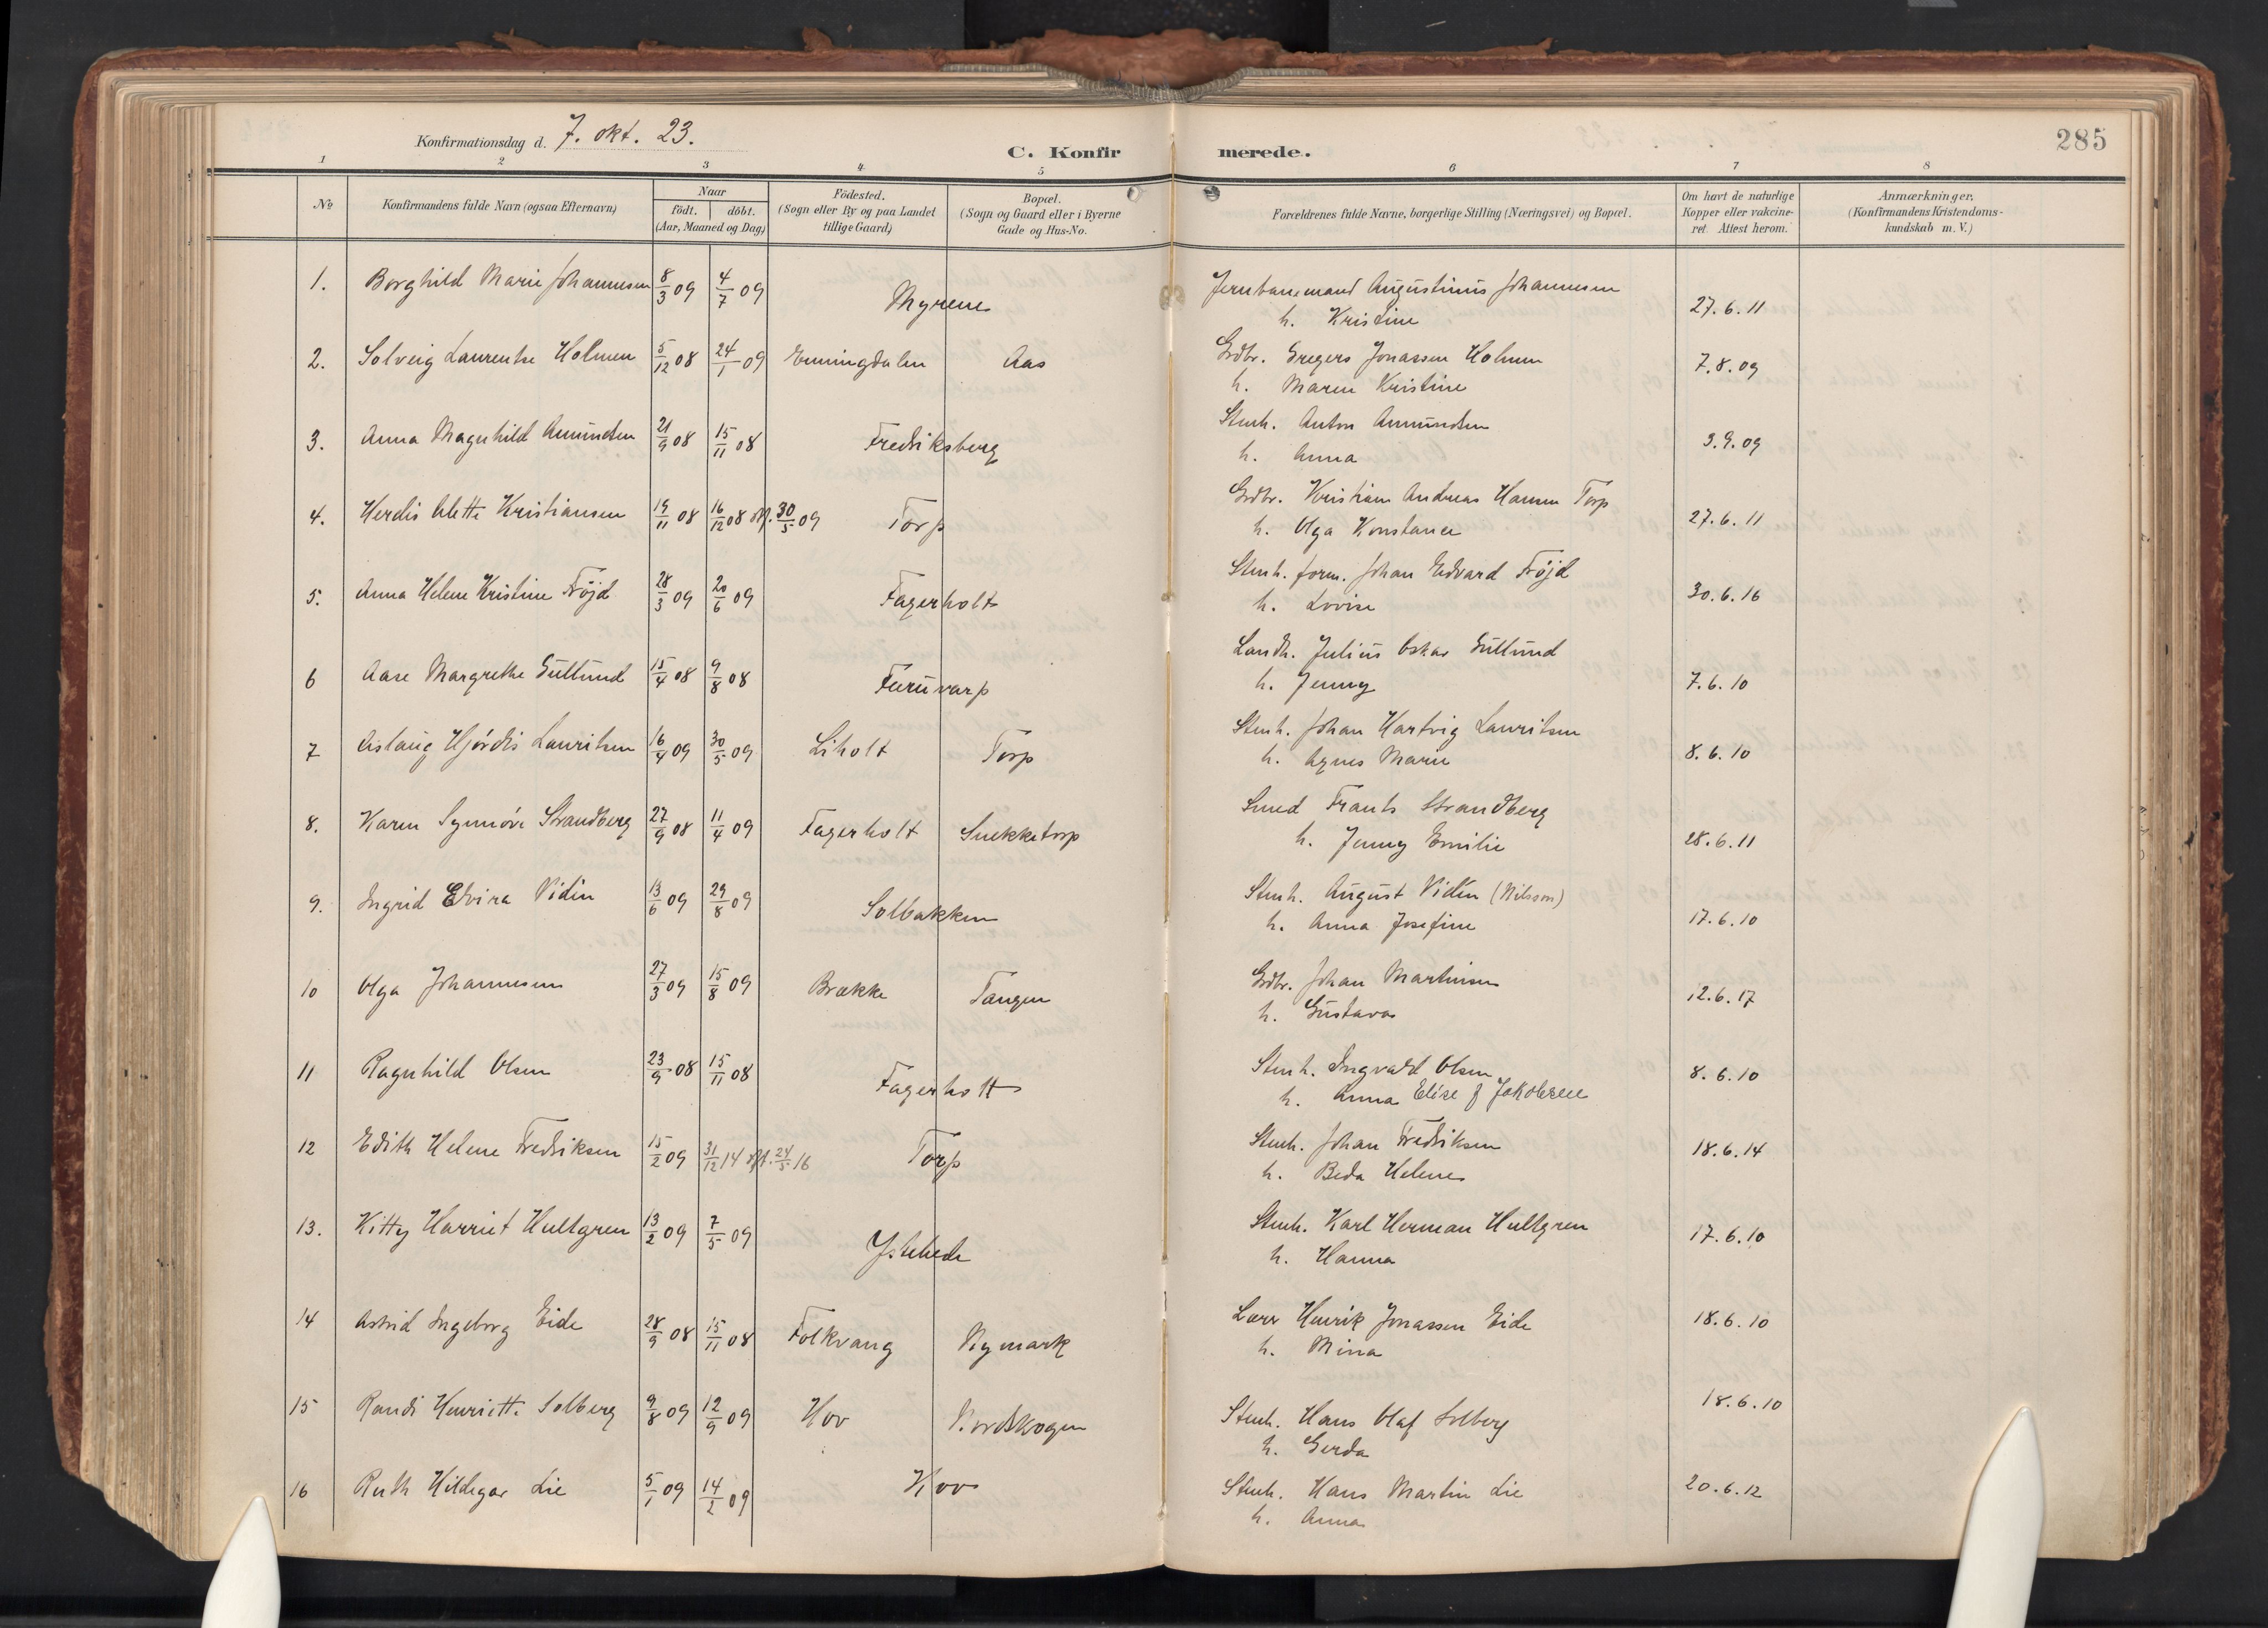 285
Konfirmationsdag d. 7. okt. 23.
C. Konfirmerede.
1 2 3 4 5 6 7 8
No
Konfirmandens fulde Navn (ogsaa Efternavn)
Naar
födt. | döbt.
(Aar, Maaned og Dag)
Födested.
(Sogn eller By og paa Landet
tillige Gaard)
Bopæl.
(Sogn og Gaard eller i Byerne
Gade og Hus-No.
Forældrenes fulde Navne, borgerlige Stilling (Næringsvei) og Bopæl.
Om havt de naturlige
Kopper eller vakcine-
ret. Attest herom.
Anmærkninger,
(Konfirmandens Kristendoms-
kundskab m. V.)
1. Borghild Marie Johannesen 8/3 09 4/7 09 Myrene Jernbanemand Augustinus Johannesen 27.6.11
h. Kristine
2. Solveig Laurentse Holmen 5/12 08 24/1 09 Enningdalen Aas Grdbr. Gregers Jonassen Holmen 7.8.09
h. Maren Kristine
3. Anna Magnhild Amundsen 21/9 08 15/11 08 Fredriksberg Stenh. Anton Amundsen 3.9.09
h. Anna
4. Herdis Alette Kristiansen 19/11 08 16/12 08 stf. 30/5 09 Torp Grdbr. Kristian Andreas Hansen Torp 27.6.11
h. Olga Konstance
5. Anna Helene Kristine Fröjd 28/3 09 20/6 09 Fagerholt Stenh. form. Johan Edvard Fröjd 30.6.16
h. Lovise
6 Aase Margrethe Gullund 15/4 08 9/8 08 Furuvarp Landh. Julius Oskar Gullund 7.6.10
h. Jenny
7 Aslaug Hjördis Lauritsen 16/4 09 30/5 09 Liholt Torp Stenh. Johan Hartvig Lauritsen 8.6.10
h. Agnes Marie
8. Karen Synnöve Strandberg 27/9 08 11/4 09 Fagerholt Snekketorp Smed Frants Strandberg 28.6.11
h. Jenny Emilie
9. Ingrid Elvira Vidin 13/6 09 29/8 09 Solbakken Stenh. August Vidin (Nilsson) 17.6.10
h. Anna Josefine
10 Olga Johannesen 27/3 09 15/8 09 Brække Tangen Grdbr. Johan Martinsen 12.6.17
h. Gustava
11 Ragnhild Olsen 23/9 08 15/11 08 Fagerholt Stenh. Ingvald Olsen 8.6.10
h. Anna Elise f Jakobsen
12 Edith Helene Fredriksen 15/2 09 31/12 14 stf. 24/5 16 Torp Stenh. Johan Fredriksen 18.6.14
h. Beda Helene
13. Kitty Harriet Hultgren 13/2 09 7/5 09 Ystehede Stenh. Karl Herman Hultgren 17.6.10
h. Hanna
14 Astrid Ingeborg Eide 28/9 08 15/11 08 Folkvang Nymark Lærer Henrik Jonassen Eide 18.6.10
h. Mina
15 Randi Henriette Solberg 9/8 09 12/9 09 Hov Nordskogen Stenh. Hans Olaf Solberg 18.6.10
h. Gerda
16 Ruth Hildegar Lie 5/1 09 14/2 09 Hov Stenh. Hans Martin Lie 20.6.12
h. Anna